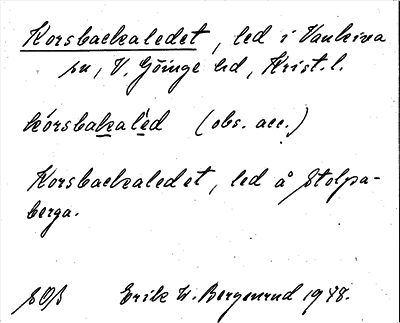 Korsbackaledet, led i Vankiva
sn, V. Göinge hd, Krist. l.
kórsbakalèd (obs. acc.)
Korsbackaledet, led å Stolpa-
berga.
SOS Erik W. Bergenrud 1948.